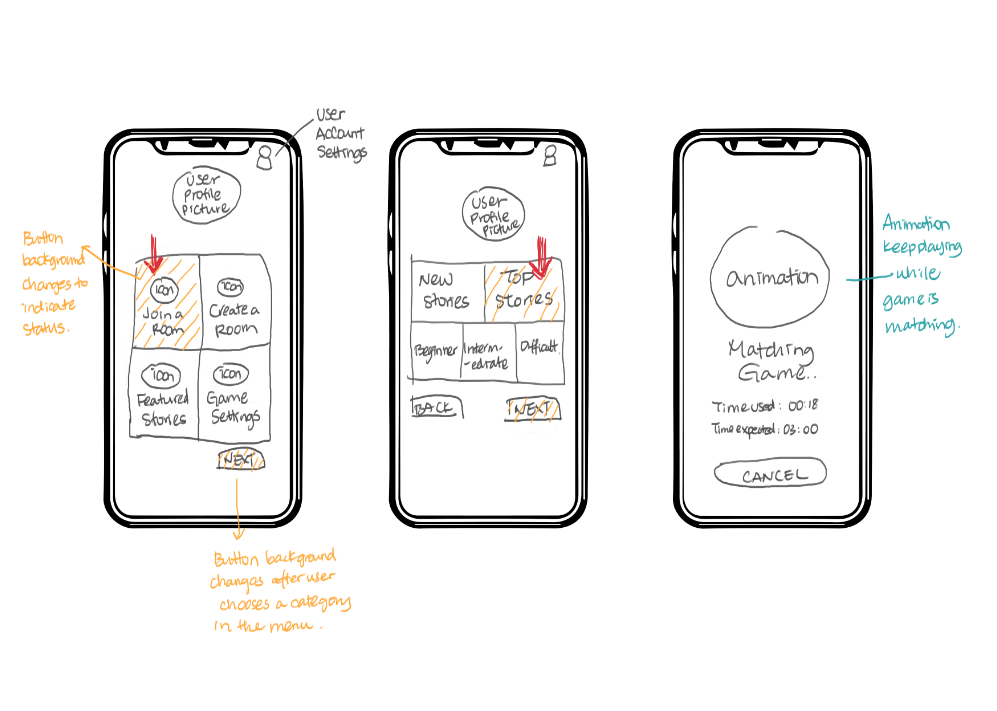 User
Account
Settings
User
Profile
Picture
Button
background
changes to
indicate
status.
icon
Join a
Room
icon
Create a
Room
icon
Featured
Stories
icon
Game
Settings
NEXT
Button background
changes after user
chooses a category
in the menu.
User
Profile
Picture
New
Stories
Top
Stories
Beginner
Interm-
-ediate
Difficult
BACK
NEXT
animation
Matching
Game..
Time used: 00:18
Time expected: 03:00
CANCEL
Animation
keep playing
while
game is
matching.